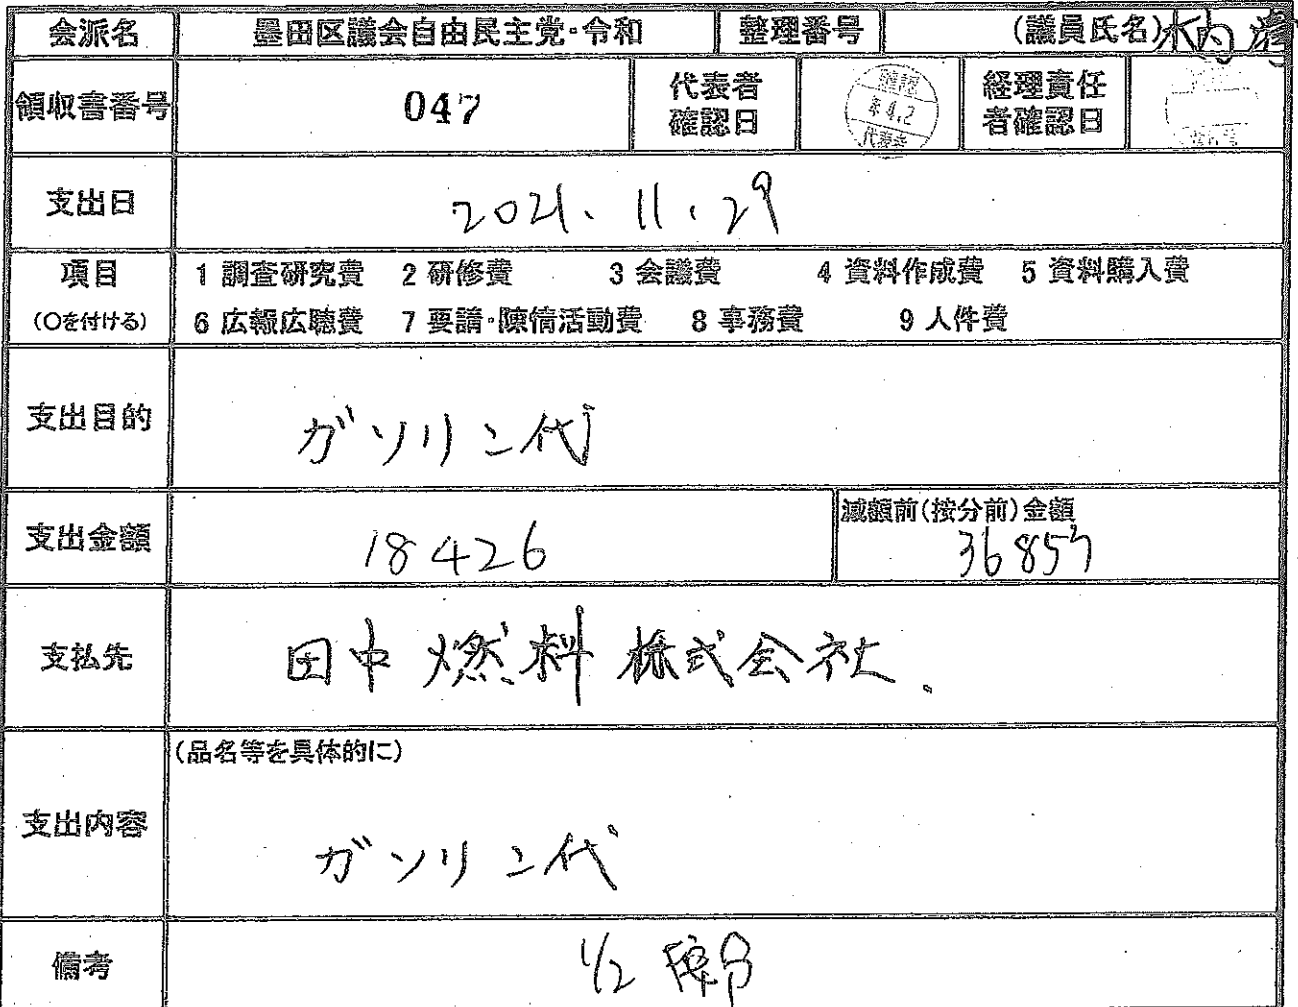 会派名 墨田区議会自由民主党・令和 整理番号 (議員氏名)木内 清
領収書番号 047 代表者確認日 確認 4.4.2 代表者 経理責任者確認日
支出日 2021.11.29
項目 1 調査研究費 2 研修費 3 会議費 4 資料作成費 5 資料購入費
(○を付ける) 6 広報広聴費 7 要請・陳情活動費 8 事務費 9 人件費
支出目的 ガソリン代
支出金額 18426 減額前(按分前)金額 36853
支払先 田中燃料株式会社.
(品名等を具体的に)
支出内容 ガソリン代
備考 1/2